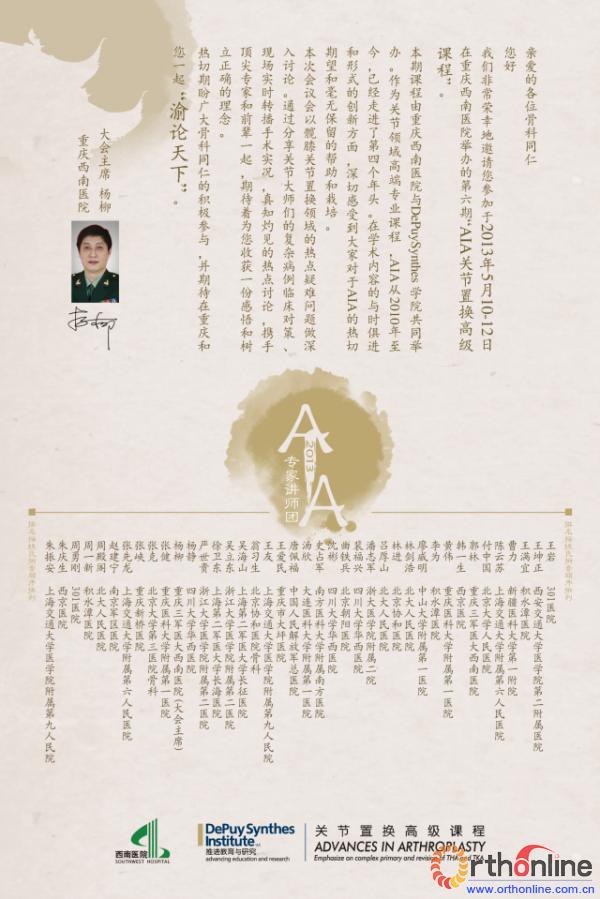 亲爱的各位骨科同仁
您好
我们非常荣幸地邀请您参加于2013年5月10-12日
在重庆西南医院举办的第六期“AIA关节置换高级
课程”。
本期课程由重庆西南医院与DePuySynthes学院共同举
办。作为关节领域高端专业课程,AIA从2010年至
今,已经走进了第四个年头。在学术内容的与时俱进
和形式的创新方面,深切感受到大家对于AIA的热切
期望和毫无保留的帮助和栽培。
本次会议会以髋膝关节置换领域的热点疑难问题做深
入讨论。通过分享关节大师们的复杂病例临床对策、
现场实时转播手术实况,真知灼见的热点讨论,携手
顶尖专家和前辈一起,期待着为您收获一份感悟和树
立正确的理念。
热切期盼广大骨科同仁的积极参与,并期待在重庆和
您一起“渝论天下”。
大会主席 杨柳
重庆西南医院
AIA
2013
专家讲师团
王岩 301医院
王坤正 西安交通大学医学院第二附属医院
王满宜 积水潭医院
曹力 新疆医科大学第一附院
陈云苏 上海交通大学附属第六人民医院
付中国 北京大学人民医院
郭林 重庆三军医大西南医院
韩一生 西京医院
黄伟 重庆医科大学附属第一医院
李为 积水潭医院
廖威明 中山大学附属第一医院
林剑浩 北大人民医院
林进 北京协和医院
吕厚山 北大人民医院
潘志军 浙大医学院附属二院
裴福兴 四川大学华西医院
曲铁兵 北京朝阳医院
沈彬 四川大学华西医院
史占军 南方医科大学附属南方医院
汤欣 大连医科大学附属第一医院
唐佩福 中国人民解放军总医院
王爱民 重庆市大坪医院
王友 上海交通大学医学院附属第九人民医院
翁习生 北京协和医院骨科
吴海山 上海第二军医大学长征医院
吴立东 浙江大学医学院附属第二医院
徐卫东 上海第二军医大学长海医院
严世贵 浙江大学医学院附属第二医院
杨静 四川大学华西医院
杨柳 重庆三军医大西南医院(大会主席)
张健 重庆医科大学附属第一医院
张克 北京大学第三医院骨科
张峡 重庆新桥医院
张先龙 上海交通大学附属第六人民医院
赵建宁 南京军区医院
周殿阁 北大人民医院
周一新 积水潭医院
周勇刚 301医院
朱庆生 西京医院
朱振安 上海交通大学医学院附属第九人民医院
西南医院
SOUTHWEST HOSPITAL
DePuySynthes
Institute
推进教育与研究
advancing education and research
关节置换高级课程
ADVANCES IN ARTHROPLASTY
Emphasize on complex primary and revision of THA and TKA
Orthonline
www.orthonline.com.cn